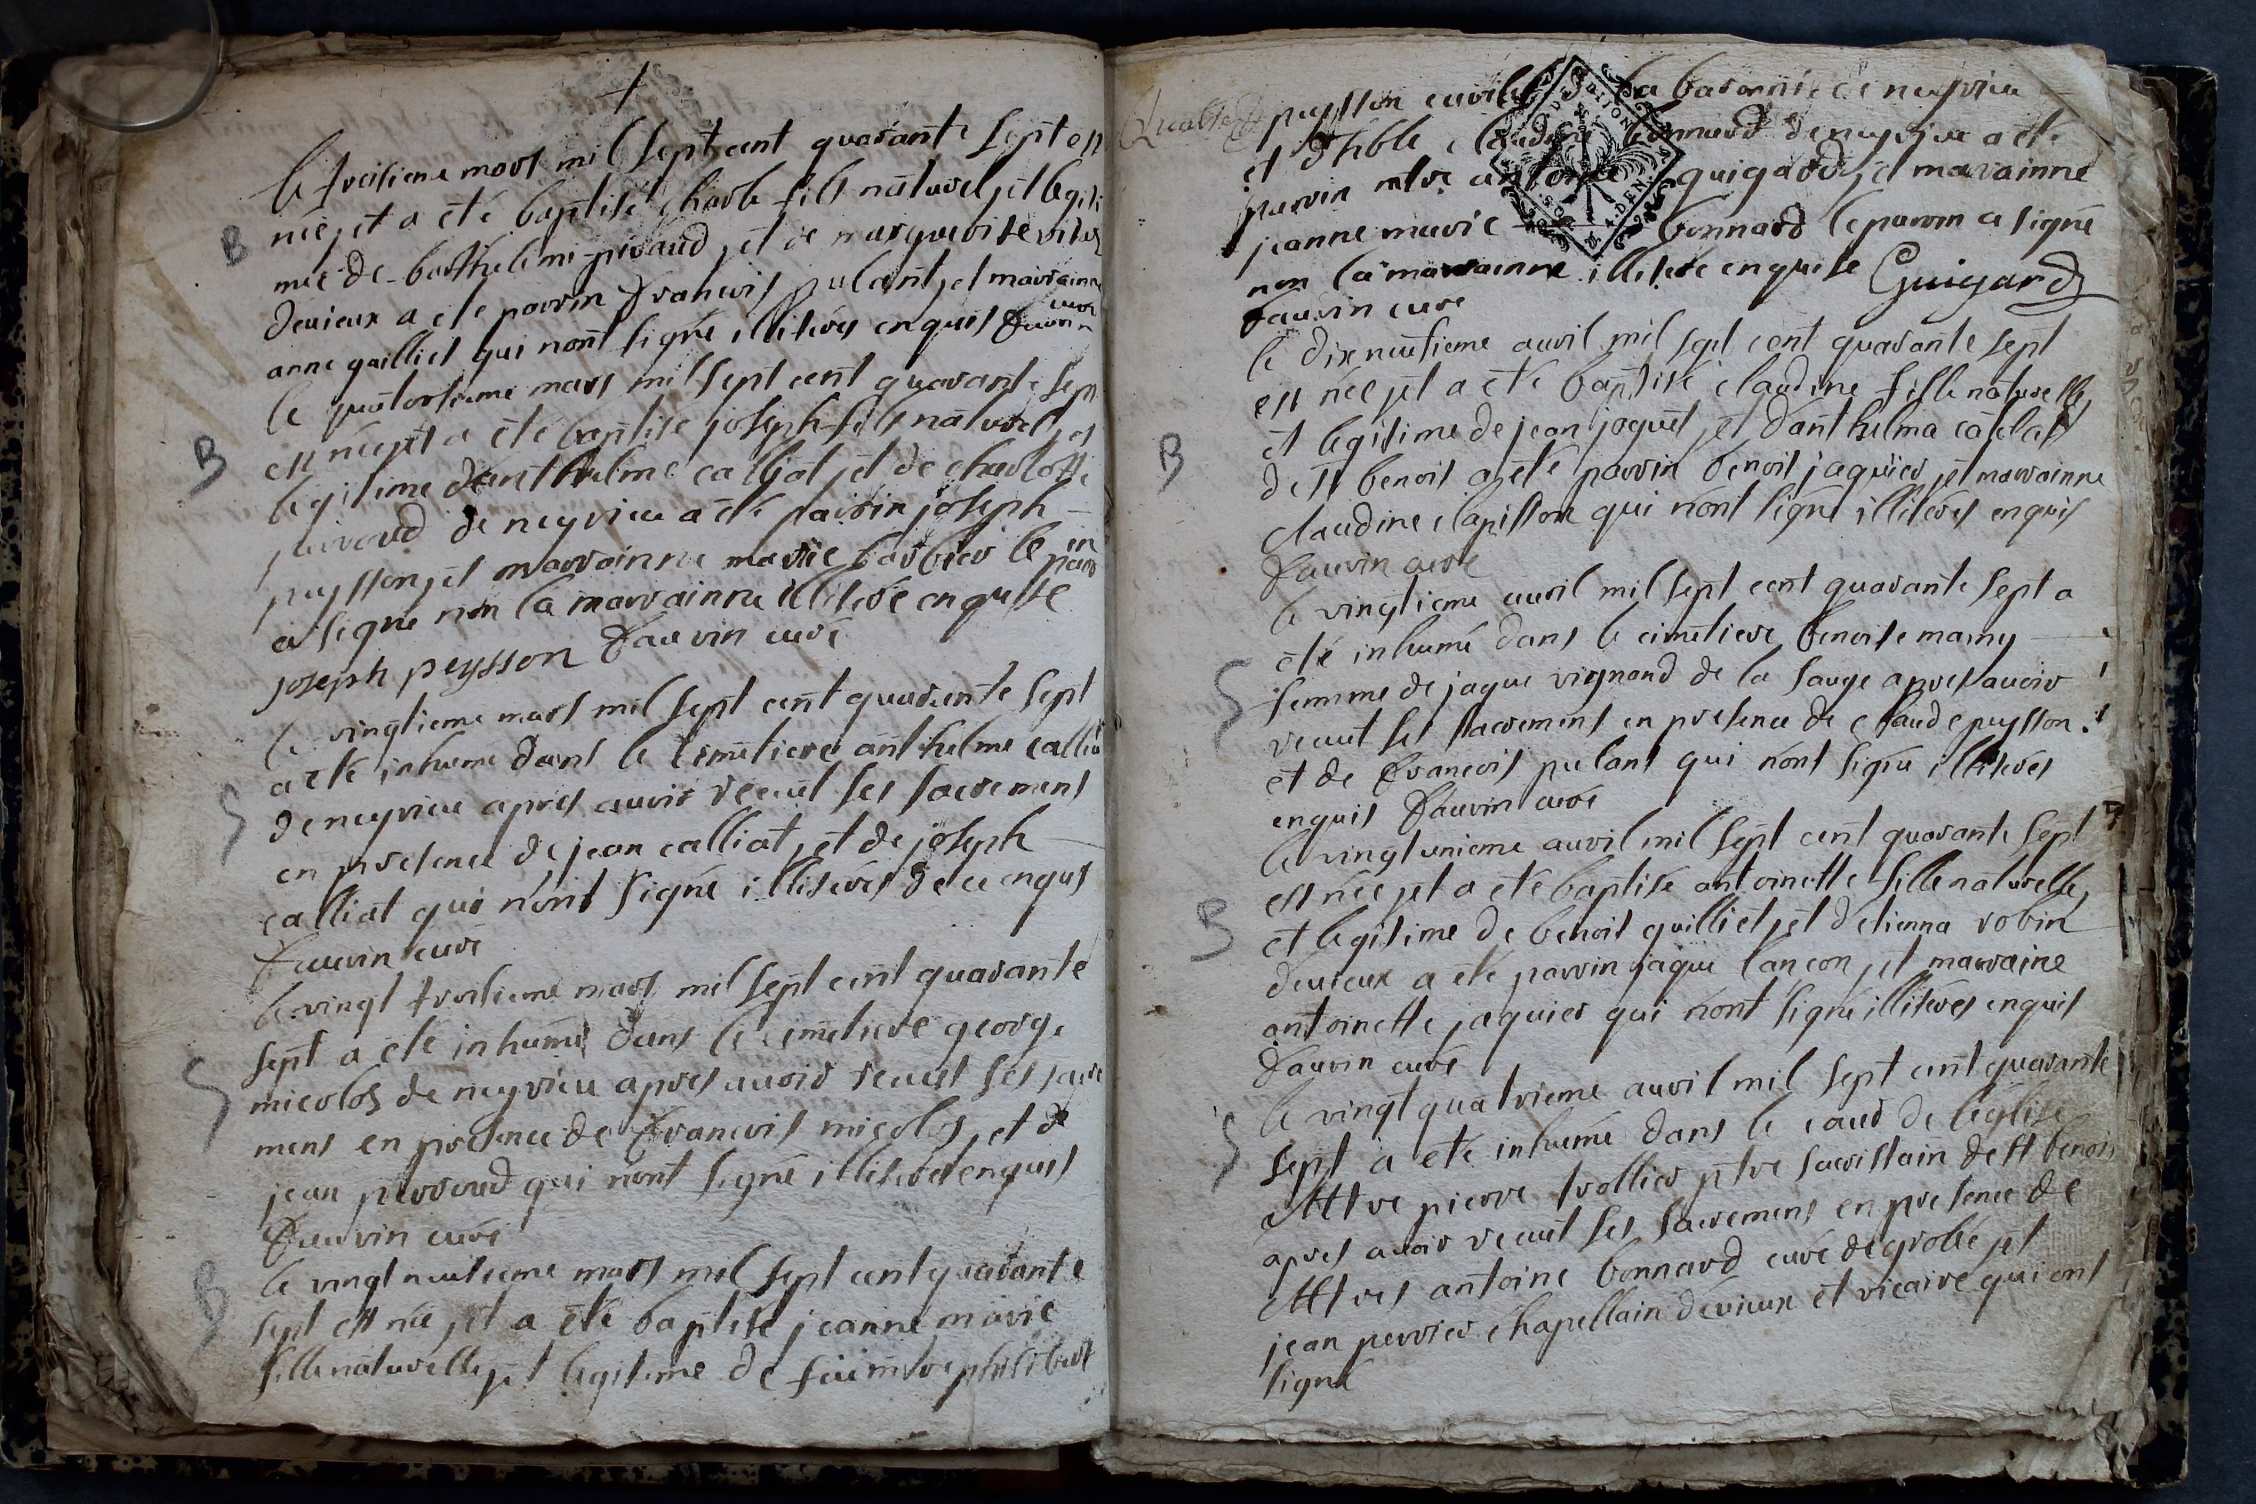 le treisieme mars mil sept cent quarante sept est
B
née, et a été baptisé charle fils naturel, et legiti
me de barthelemi pivaud, et de marguerite
devieux a ete parrin francois pulant, et marrainne
anne guilliet qui n'ont signé illiteres enquis fauvin curé
le quatorsieme mars mil sept cent quarante sept
B
est née, et a été baptisé joseph fils naturel, et
legitime danthelme calliat, et de charlotte
de neyrieu a été pairin joseph
puysson, et marrainne marie barbier le parrin
a signé non la marrainne illitere enquise
joseph peysson fauvin curé
le vingtieme mars mil sept cent quarante sept
a été inhumé dans le cimetiere anthelme calliat
S
de neyrieu apres avoir reçuit ses sacremens
en presence de jean calliat, et de joseph
calliat qui n'ont signé illiteres de ce enquis
fauvin curé
le vingt troisieme mars mil sept cent quarante
sept a été inhumé dans le cimetiere george
S
micoloz de neyrieu apres avoir reçuit ses sacre
mens en presence de francois micoloz, et de
jean perroud qui n'ont signé illiteres enquis
fauvin curé
B
le vingt neufieme mars mil sept cent quarante
sept est née, et a été baptisé jeanne marie
fille naturelle, et legitime de feu mtre philibert
puysson curial de la baronnie de neyrieu
et d'hble claudine bonnard de neyrieu a été
parrin mtre antoine guigard, et marainne
jeanne marie bonnard le parrin a signé
non la marrainne illitere enquise Guigard
fauvin curé
le dix neufieme avril mil sept cent quarante sept
est née, et a été baptisé claudine fille naturelle,
et legitime de jean joquet, et danthelma
B
de st benoit a été parrin benoit jaquier, et marrainne
claudine clapisson qui n'ont signé illiteres enquis
fauvin curé
le vingtieme avril mil sept cent quarante sept a
été inhumé dans le cimetiere benoite mamy
S
femme de jaque vignand de la sauge apres avoir
recuit ses sacremens en presence de claude puysson
et de francois pulant qui n'ont signé illiteres
enquis fauvin curé
le vingt unieme avril mil sept cent quarante sept
est née, et a été baptisé antoinette fille naturelle,
B
et legitime de benoit guilliet, et d'etienna robin
devieux a été parrin jaque lançon, et marraine
antoinette jaquier qui n'ont signé illiteres enquis
fauvin curé
le vingt quatrieme avril mil sept cent quarante
S
sept a été inhumé dans le cœur de l'eglise
Mtre pierre trollier ptre sacristain de st benoit
apres avoir reçuit ses sacremens en presence de
Mtres antoine bonnard curé de grolée, et
jean perrier chapellain devieux et vicaire qui ont
signé